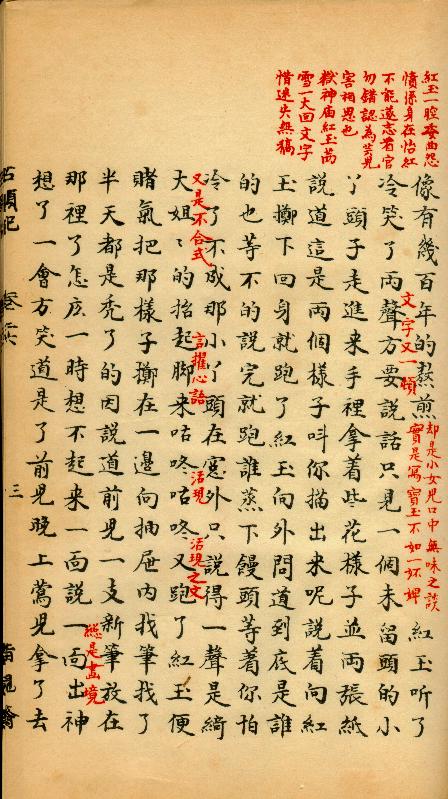 紅玉一腔委曲怨
憤係身在怡紅
不能遂志看官
勿錯認為芸兒
害相思也
獄神廟紅玉茜
雪一大回文字
惜迷失無稿
像有幾百年的熬煎
却是小女兒口中無味之談
實是寫寶玉不如一環婢
紅玉聽了
冷笑了兩聲方要說話只見一個未留頭的小
文字又一頓
丫頭子走進來手裡拿着些花樣子並兩張紙
說道這是兩個樣子叫你描出來呢說着向紅
玉擲下回身就跑了紅玉向外問道到底是誰
的也等不的說完就跑誰蒸下饅頭等着你怕
冷了不成那小丫頭在窓外只說得一聲是綺
又是不合式
言擢心語
活現
活現之文
大姐〻的抬起脚来咕咚咕咚又跑了紅玉便
賭氣把那樣子擲在一邊向抽屉内找筆找了
半天都是秃了的因說道前兒一支新筆放在
總是畫境
那裡了怎庅一時想不起来一面說一面出神
想了一會方笑道是了前兒晚上鶯兒拿了去
石頭記
三
脂硯齋